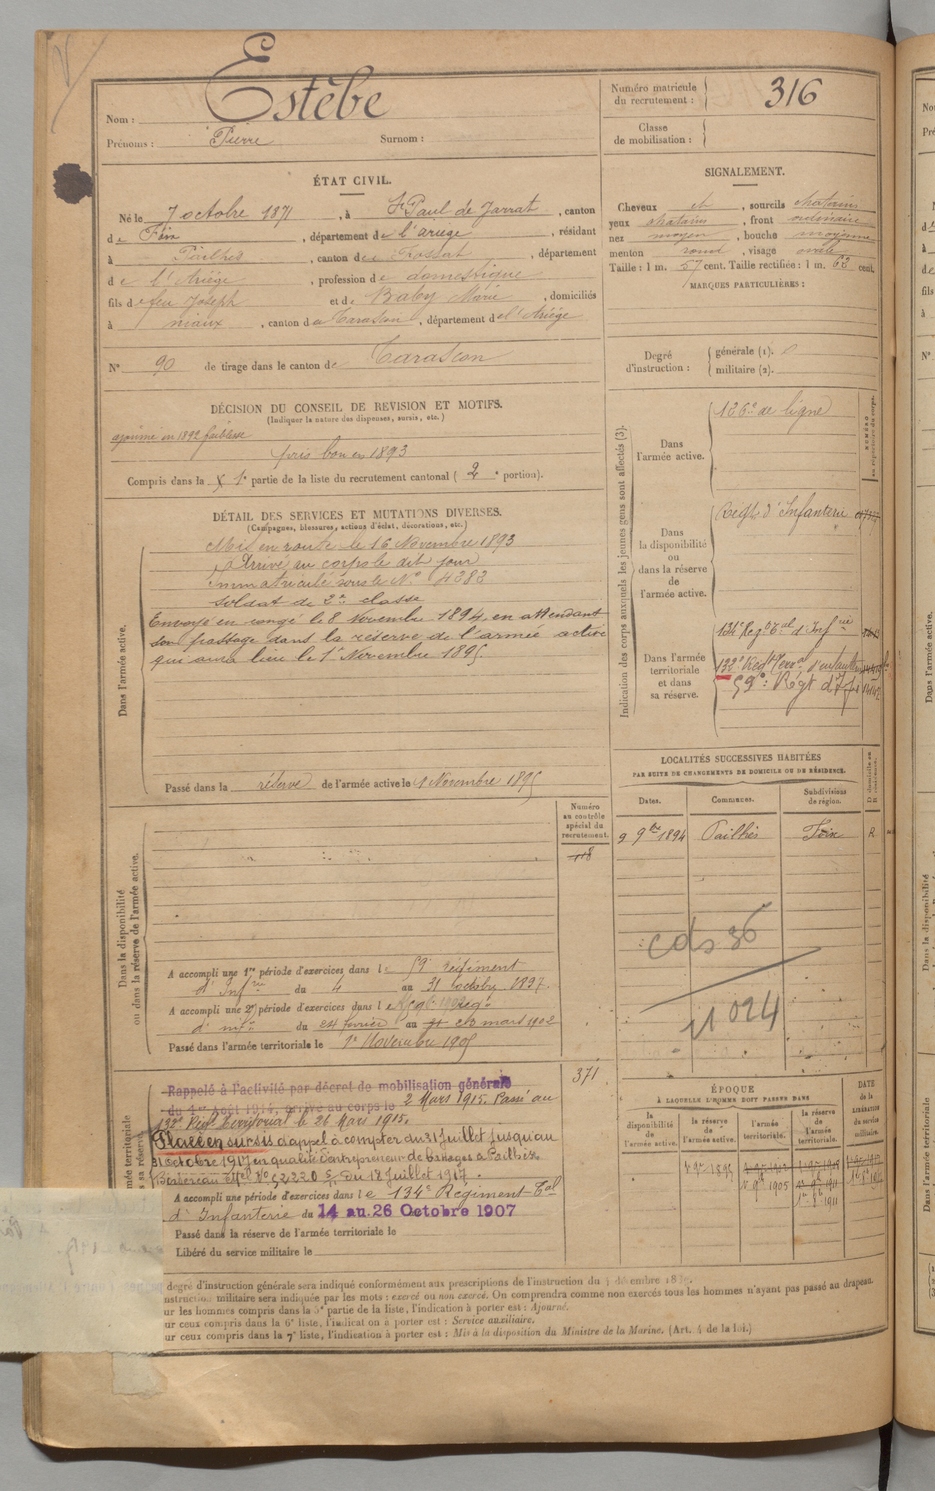 Nom : Estèbe
Prénoms : Pierre Surnom :
Numéro matricule du recrutement : 316
Classe de mobilisation :
ÉTAT CIVIL.
Né le 7 octobre 1871, à St Paul de Jarrat, canton
de Foix, département de l'ariège, résidant
à Pailhès, canton de Fossat, département
de l'Ariège, profession de domestique
fils de feu Joseph et de Baby Marie, domiciliés
à niaux, canton de Tarascon, département de l'Ariège
N° 90 de tirage dans le canton de Tarascon
SIGNALEMENT.
Cheveux et, sourcils chatains
yeux chatains, front ordinaire
nez moyen, bouche moyenne
menton rond, visage ovale
Taille : 1 m. 57 cent. Taille rectifiée : 1 m. 62 cent.
MARQUES PARTICULIÈRES :
Degré d'instruction : générale (1): 0
militaire (2).
DÉCISION DU CONSEIL DE REVISION ET MOTIFS.
(Indiquer la nature des dispenses, sursis, etc.)
ajourné en 1892 faiblesse
pris bon en 1893
Compris dans la 1e partie de la liste du recrutement cantonal (2e portion).
DÉTAIL DES SERVICES ET MUTATIONS DIVERSES.
(Campagnes, blessures, actions d'éclat, décorations, etc.)
Dans l'armée active.
Mis en route le 16 Novembre 1893
Arrivé au corps le dit jour
immatriculé sous le N° 4383
soldat de 2e classe
Envoyé en congé le 8 Novembre 1894, en attendant
son passage dans la réserve de l'armée active
qui aura lieu le 1er Novembre 1895.
Passé dans la réserve de l'armée active le 1 Novembre 1895
Indication des corps auxquels les jeunes gens sont affectés (3).
NUMÉRO au répertoire du corps.
Dans l'armée active. 126e de ligne
Dans la disponibilité ou dans la réserve de l'armée active.
Régt d'Infanterie
Dans l'armée territoriale et dans sa réserve.
134e Regt Tal d'Infrie
132e Regt Terral d'infanterie
59e Régt d'Ifie
LOCALITÉS SUCCESSIVES HABITÉES
PAR SUITE DE CHANGEMENTS DE DOMICILE OU DE RÉSIDENCE.
Dates. Communes. Subdivisions de région. D. domicile ou R. résidence.
9 9bre 1894 Pailhès Foix R
cds 36
11 024
Dans la disponibilité ou dans la réserve de l'armée active.
Numéro au contrôle spécial du recrutement.
118
A accompli une 1re période d'exercices dans le 59e régiment
d'Infrie du 4 au 31 octobre 1897.
A accompli une 2e période d'exercices dans le
d'infie du 24 février au 23 mars 1902
Passé dans l'armée territoriale le 1er Novembre 1905
371
Rappelé à l'activité par décret de mobilisation générale
du 1er Août 1914, arrivé au corps le 2 Mars 1915. Passé au
132e Regt Territorial le 26 Mars 1915.
Placé en sursis d'appel à compter du 31 Juillet jusqu'au
31 octobre 1917 en qualité d'entrepreneur de battages à Pailhès
N° 52220 du 18 Juillet 1917.
A accompli une période d'exercices dans le 134e Régiment Tal
d'Infanterie du 14 au 26 Octobre 1907
Passé dans la réserve de l'armée territoriale le
Libéré du service militaire le
ÉPOQUE
À LAQUELLE L'HOMME DOIT PASSER DANS
la disponibilité de l'armée active. la réserve de l'armée active. l'armée territoriale. la réserve de l'armée territoriale. DATE de la LIBÉRATION du service militaire.
1 9bre 1895
1 9bre 1905
degré d'instruction générale sera indiqué conformément aux prescriptions de l'instruction du 4 décembre 1889.
instruction militaire sera indiquée par les mots : exercé ou non exercé. On comprendra comme non exercés tous les hommes n'ayant pas passé au drapeau.
ur les hommes compris dans la 5e partie de la liste, l'indication à porter est : Ajourné.
ur ceux compris dans la 6e liste, l'indication à porter est : Service auxiliaire.
ur ceux compris dans la 7e liste, l'indication à porter est : Mis à la disposition du Ministre de la Marine. (Art. 4 de la loi.)